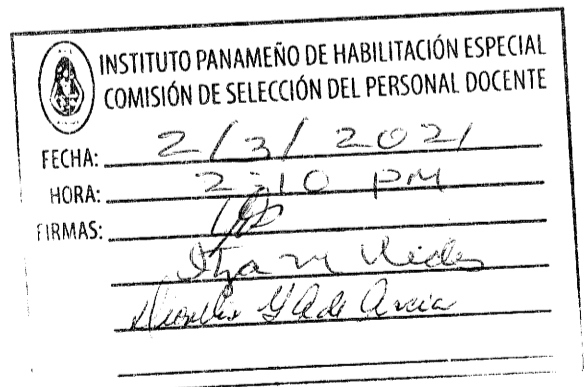 INSTITUTO PANAMEÑO DE HABILITACIÓN ESPECIAL
COMISIÓN DE SELECCIÓN DEL PERSONAL DOCENTE
FECHA: 2/3/2021
HORA: 2:10 PM
FIRMAS:
de